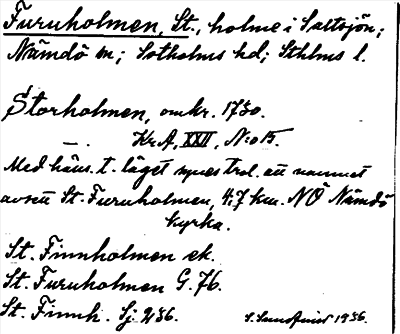 Furuholmen, St., holme i Saltsjön;
Nämdö sn; Sotholms hd; Sthlms l.
Storholmen, omkr. 1730.
— . KrA, XXII, N:o 15.
Med häns. t. läget synes trol. att namnet
avsett St. Furuholmen, 4:7 km. NÖ Nämdö
kyrka.
St. Finnholmen ek.
St. Furuholmen G. 76.
St. Finnh. Sj.
1936.